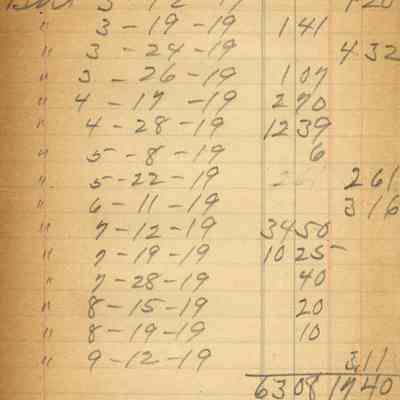 3-12-19 1 20
" 3-19-19 1 41
" 3-24-19 4 32
" 3-26-19 1 07
" 4-17-19 2 70
" 4-28-19 12 39
" 5-8-19 6
" 5-22-19 2 61
" 6-11-19 3 16
" 7-12-19 34 50
" 7-19-19 10 25
" 7-28-19 40
" 8-15-19 20
" 8-19-19 10
" 9-12-19 3 11
63 08 17 40